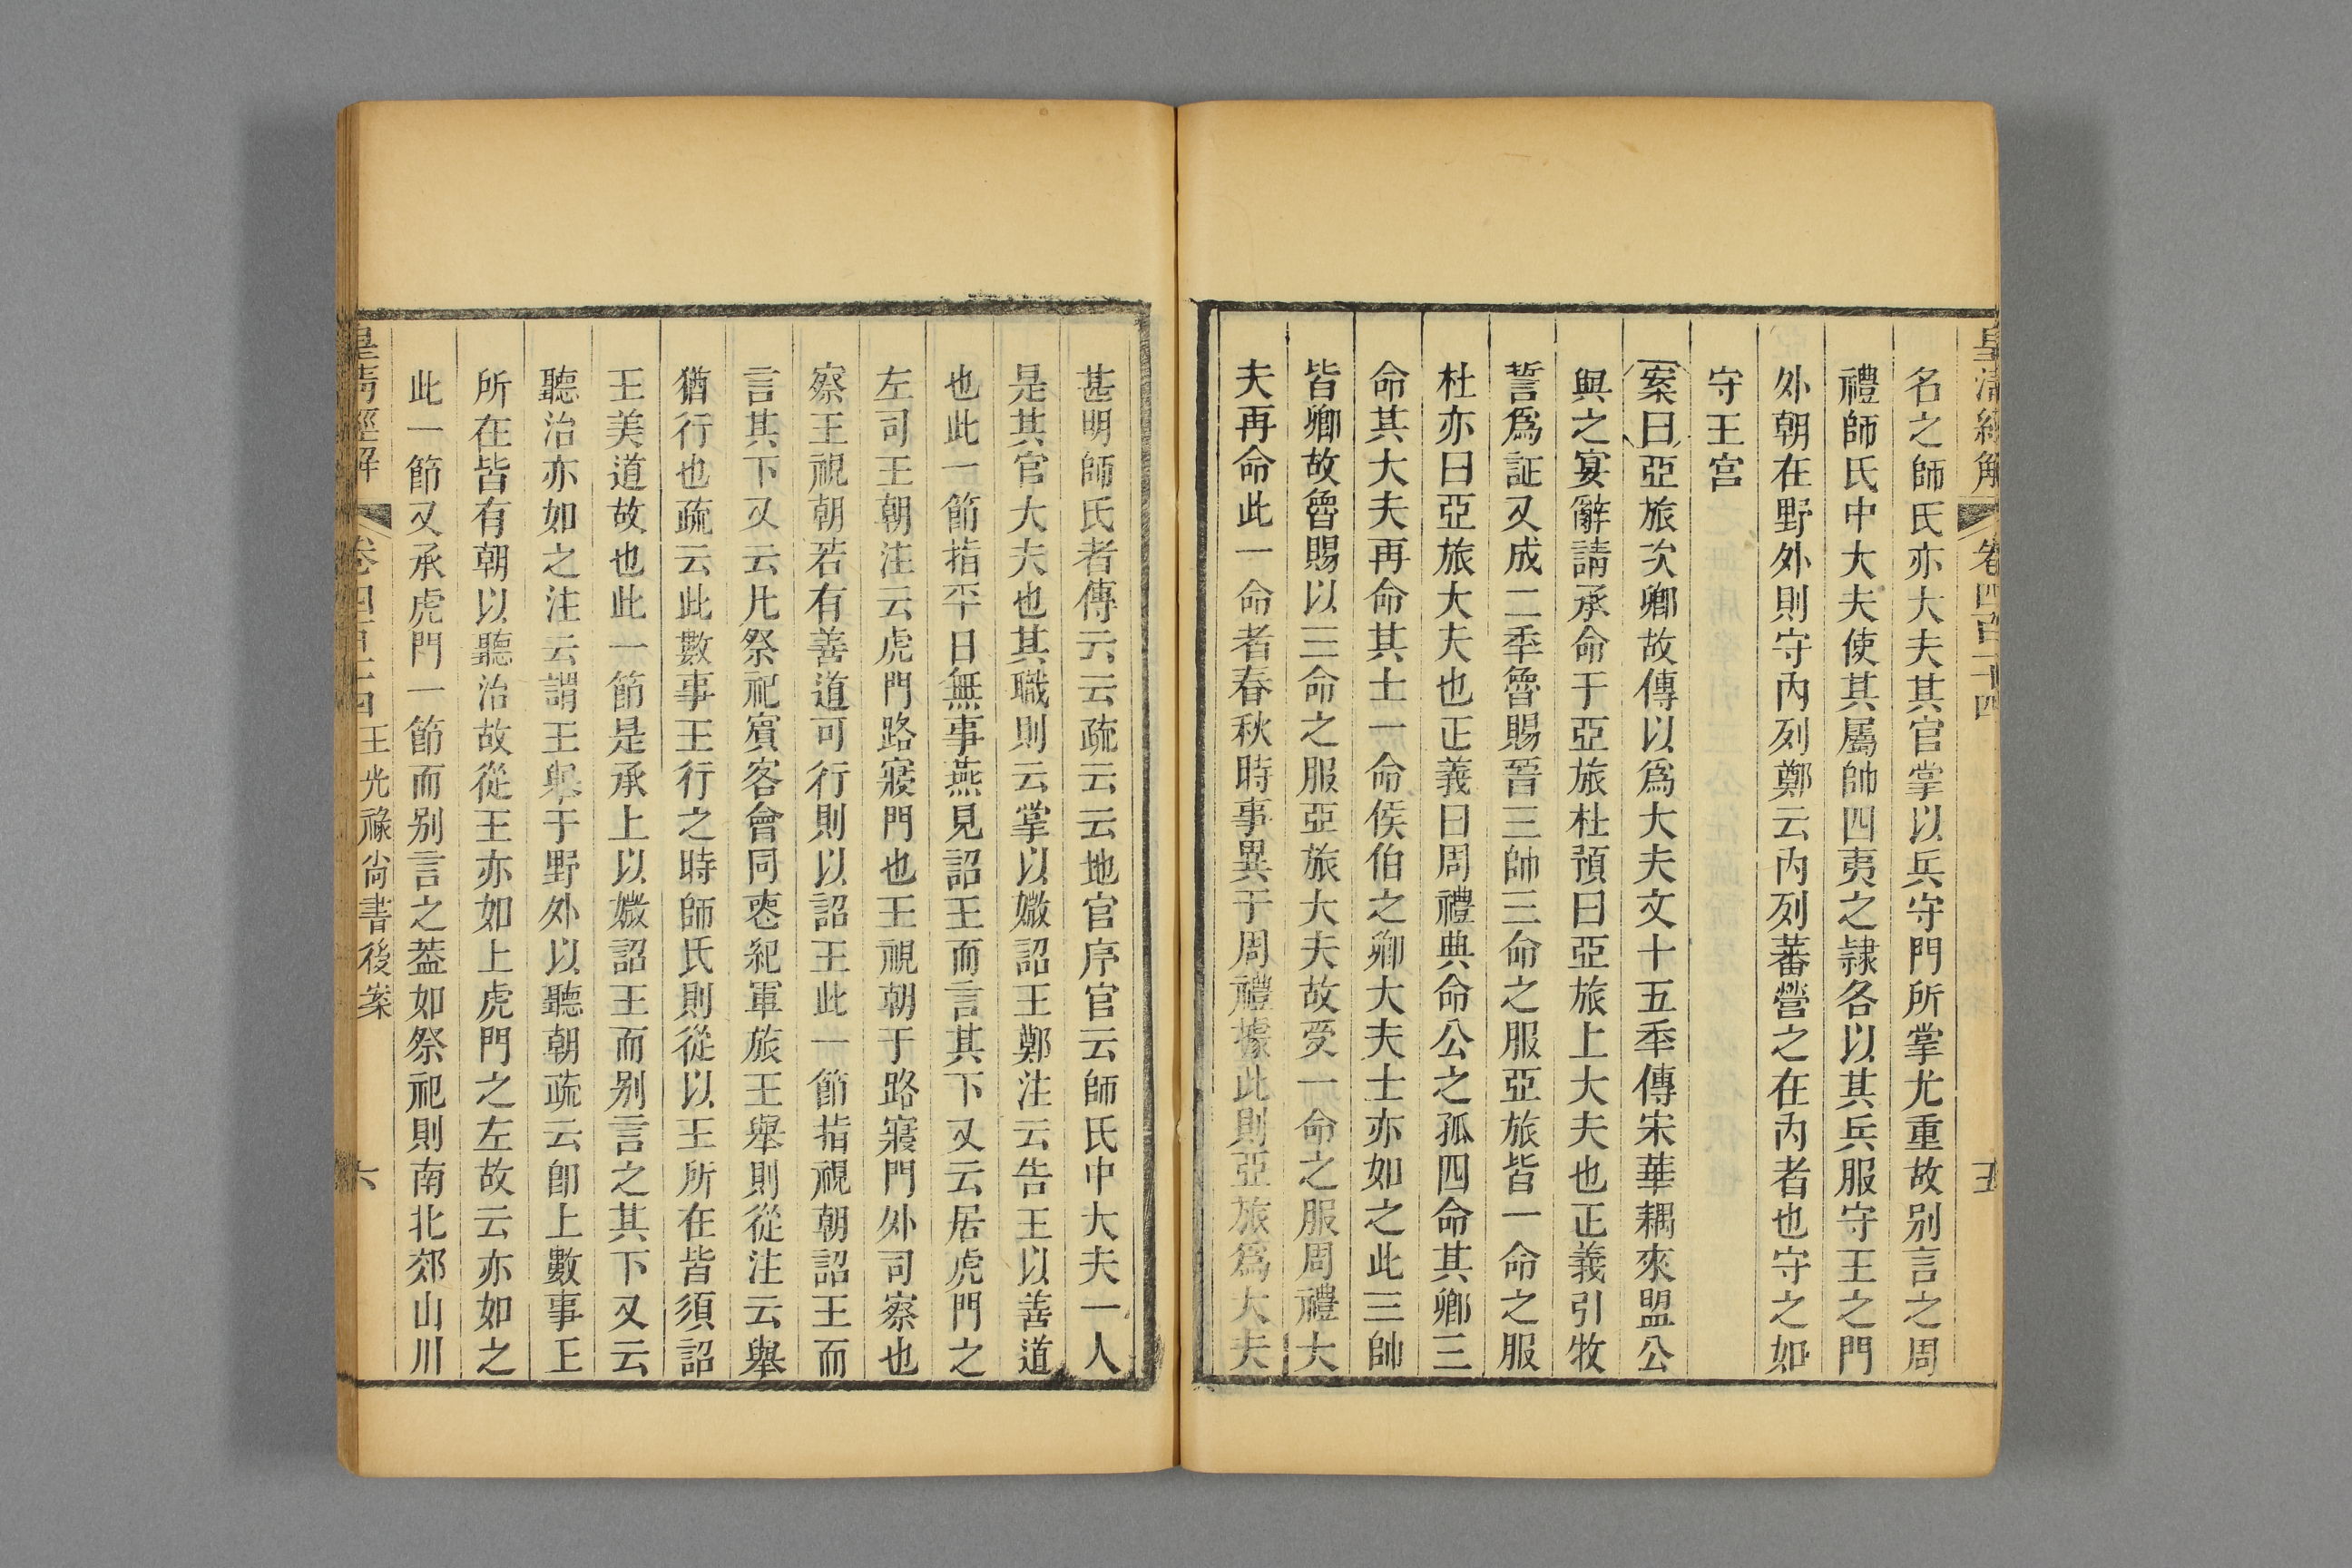 皇清經解 卷四百十四 五
名之師氏亦大夫其官掌以兵守門所掌尤重故別言之周
禮師氏中大夫使其屬帥四夷之隷各以其兵服守王之門
外朝在野外則守內列鄭云內列蕃營之在內者也守之如
守王宮
案曰亞旅次卿故傳以爲大夫文十五秊傳宋華耦來盟公
與之宴辭請承命于亞旅杜預曰亞旅上大夫也正義引牧
誓爲証又成二秊魯賜晉三帥三命之服亞旅皆一命之服
杜亦曰亞旅大夫也正義曰周禮典命公之孤四命其卿三
命其大夫再命其士一命侯伯之卿大夫士亦如之此三帥
皆卿故魯賜以三命之服亞旅大夫故受一命之服周禮大
夫再命此一命者春秋時事異于周禮據此則亞旅爲大夫
甚明師氏者傳云云疏云云地官序官云師氏中大夫一人
是其官大夫也其職則云掌以媺詔王鄭注云告王以善道
也此一節指平日無事燕見詔王而言其下又云居虎門之
左司王朝注云虎門路寢門也王視朝于路寢門外司察也
察王視朝若有善道可行則以詔王此一節指視朝詔王而
言其下又云凡祭祀賓客會同喪紀軍旅王舉則從注云舉
猶行也疏云此數事王行之時師氏則從以王所在皆須詔
王美道故也此一節是承上以媺詔王而別言之其下又云
聽治亦如之注云謂王舉于野外以聽朝疏云卽上數事王
所在皆有朝以聽治故從王亦如上虎門之左故云亦如之
此一節又承虎門一節而別言之葢如祭祀則南北郊山川
皇清經解 卷四百十四 王光祿尚書後案 六